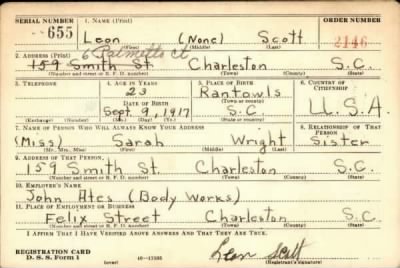 SERIAL NUMBER 1. NAME (Print) ORDER NUMBER
655 Leon (None) Scott 2146
(First) (Middle) (Last)
2. ADDRESS (Print) 6 Palmetto Ct
159 Smith St. Charleston S.C.
(Number and street or R. F. D. number) (Town) (County) (State)
3. TELEPHONE 4. AGE IN YEARS 5. PLACE OF BIRTH 6. COUNTRY OF CITIZENSHIP
23 Rantowls
DATE OF BIRTH (Town or county)
Sept. 9, 1917 S.C. U.S.A.
(Exchange) (Number) (Mo.) (Day) (Yr.) (State or country)
7. NAME OF PERSON WHO WILL ALWAYS KNOW YOUR ADDRESS 8. RELATIONSHIP OF THAT PERSON
(Miss) Sarah Wright Sister
(Mr., Mrs., Miss) (First) (Middle) (Last)
9. ADDRESS OF THAT PERSON
159 Smith St. Charleston S.C.
(Number and street or R. F. D. number) (Town) (County) (State)
10. EMPLOYER'S NAME
John Ates (Body Works)
11. PLACE OF EMPLOYMENT OR BUSINESS
Felix Street Charleston S.C.
(Number and street or R. F. D. number) (Town) (County) (State)
I AFFIRM THAT I HAVE VERIFIED ABOVE ANSWERS AND THAT THEY ARE TRUE.
REGISTRATION CARD
D. S. S. Form 1 (over) 16—17105 Leon Scott
(Registrant's signature)